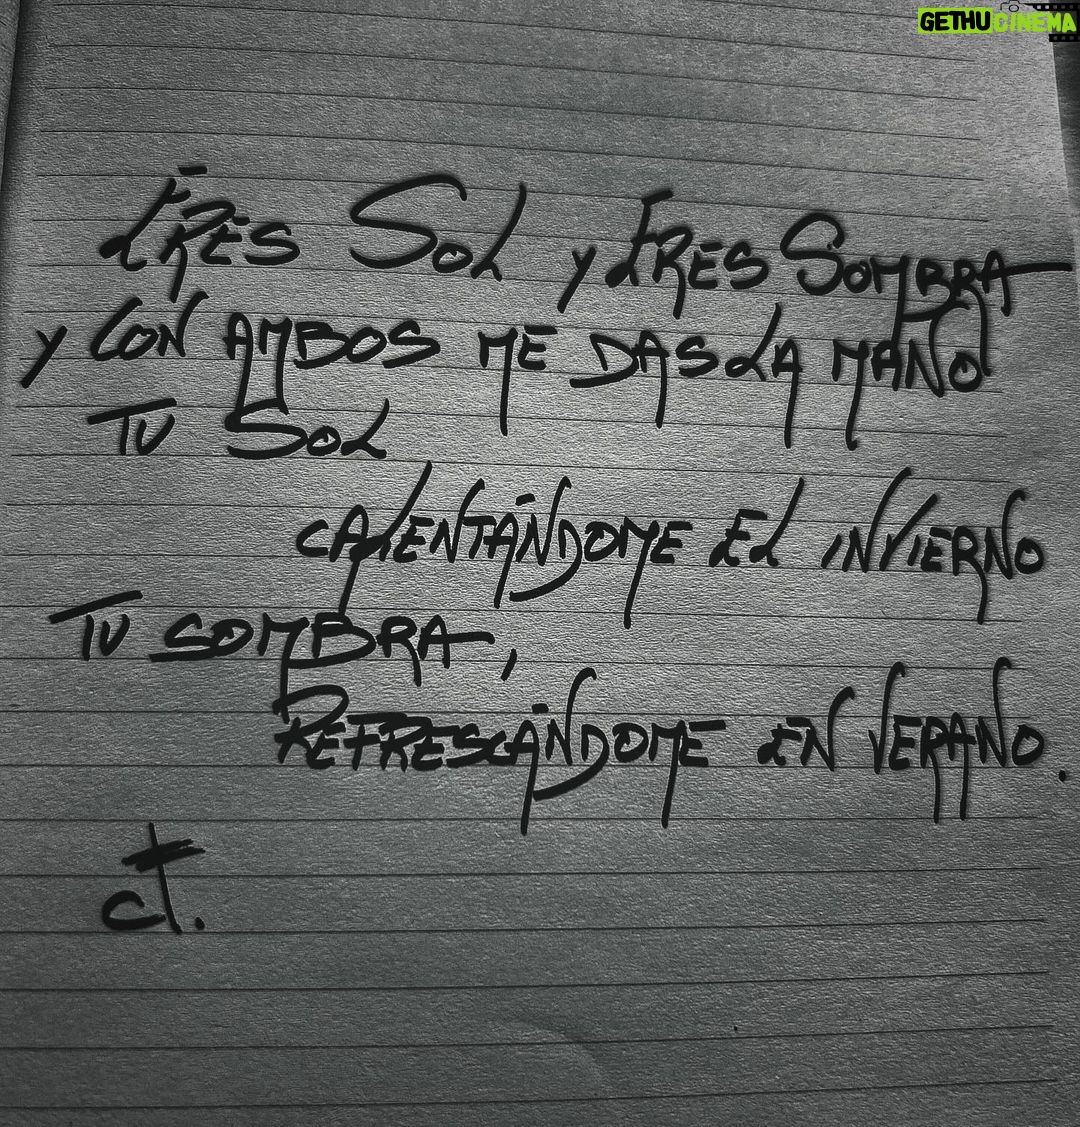 GETHUCINEMA
Eres Sol y Eres Sombra
y con ambos me das la mano
Tu Sol
calentándome el invierno
Tu sombra,
Refrescándome en verano.
ct.